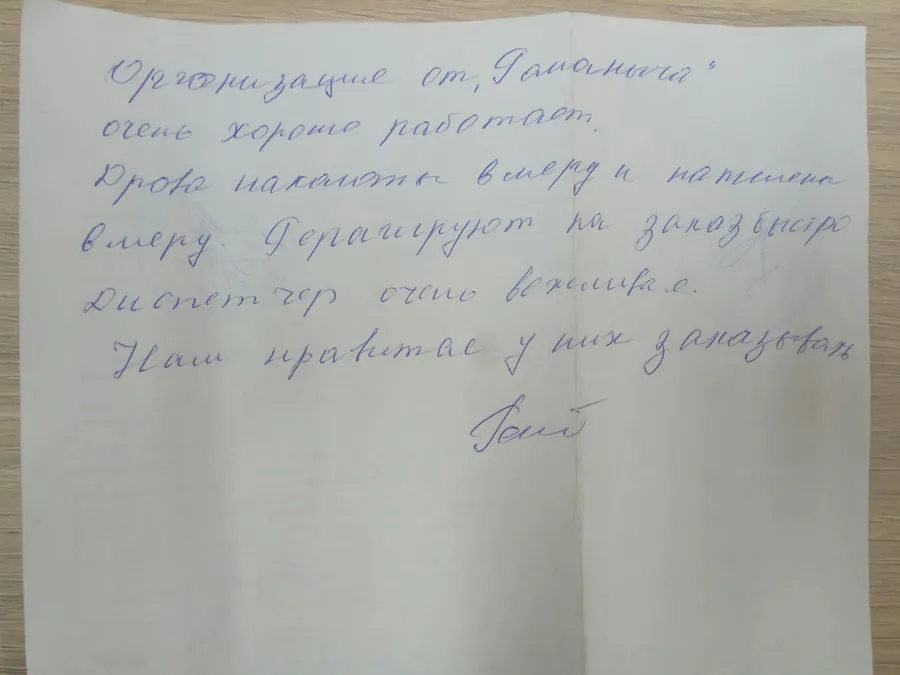 Организация от „Романыча"
очень хорошо работает.
Дрова наколоты в меру и напилены
в меру. Реагируют на заказ быстро
Диспетчер очень вежливая.
Нам нравится у них заказывать